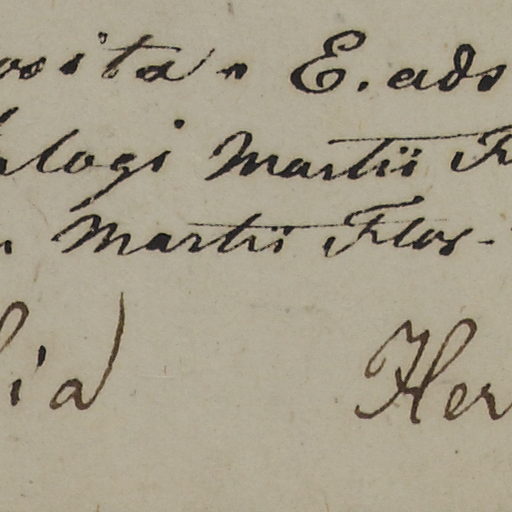 osita. E. ads
logi Martii F
Martii Flos-
ia Her